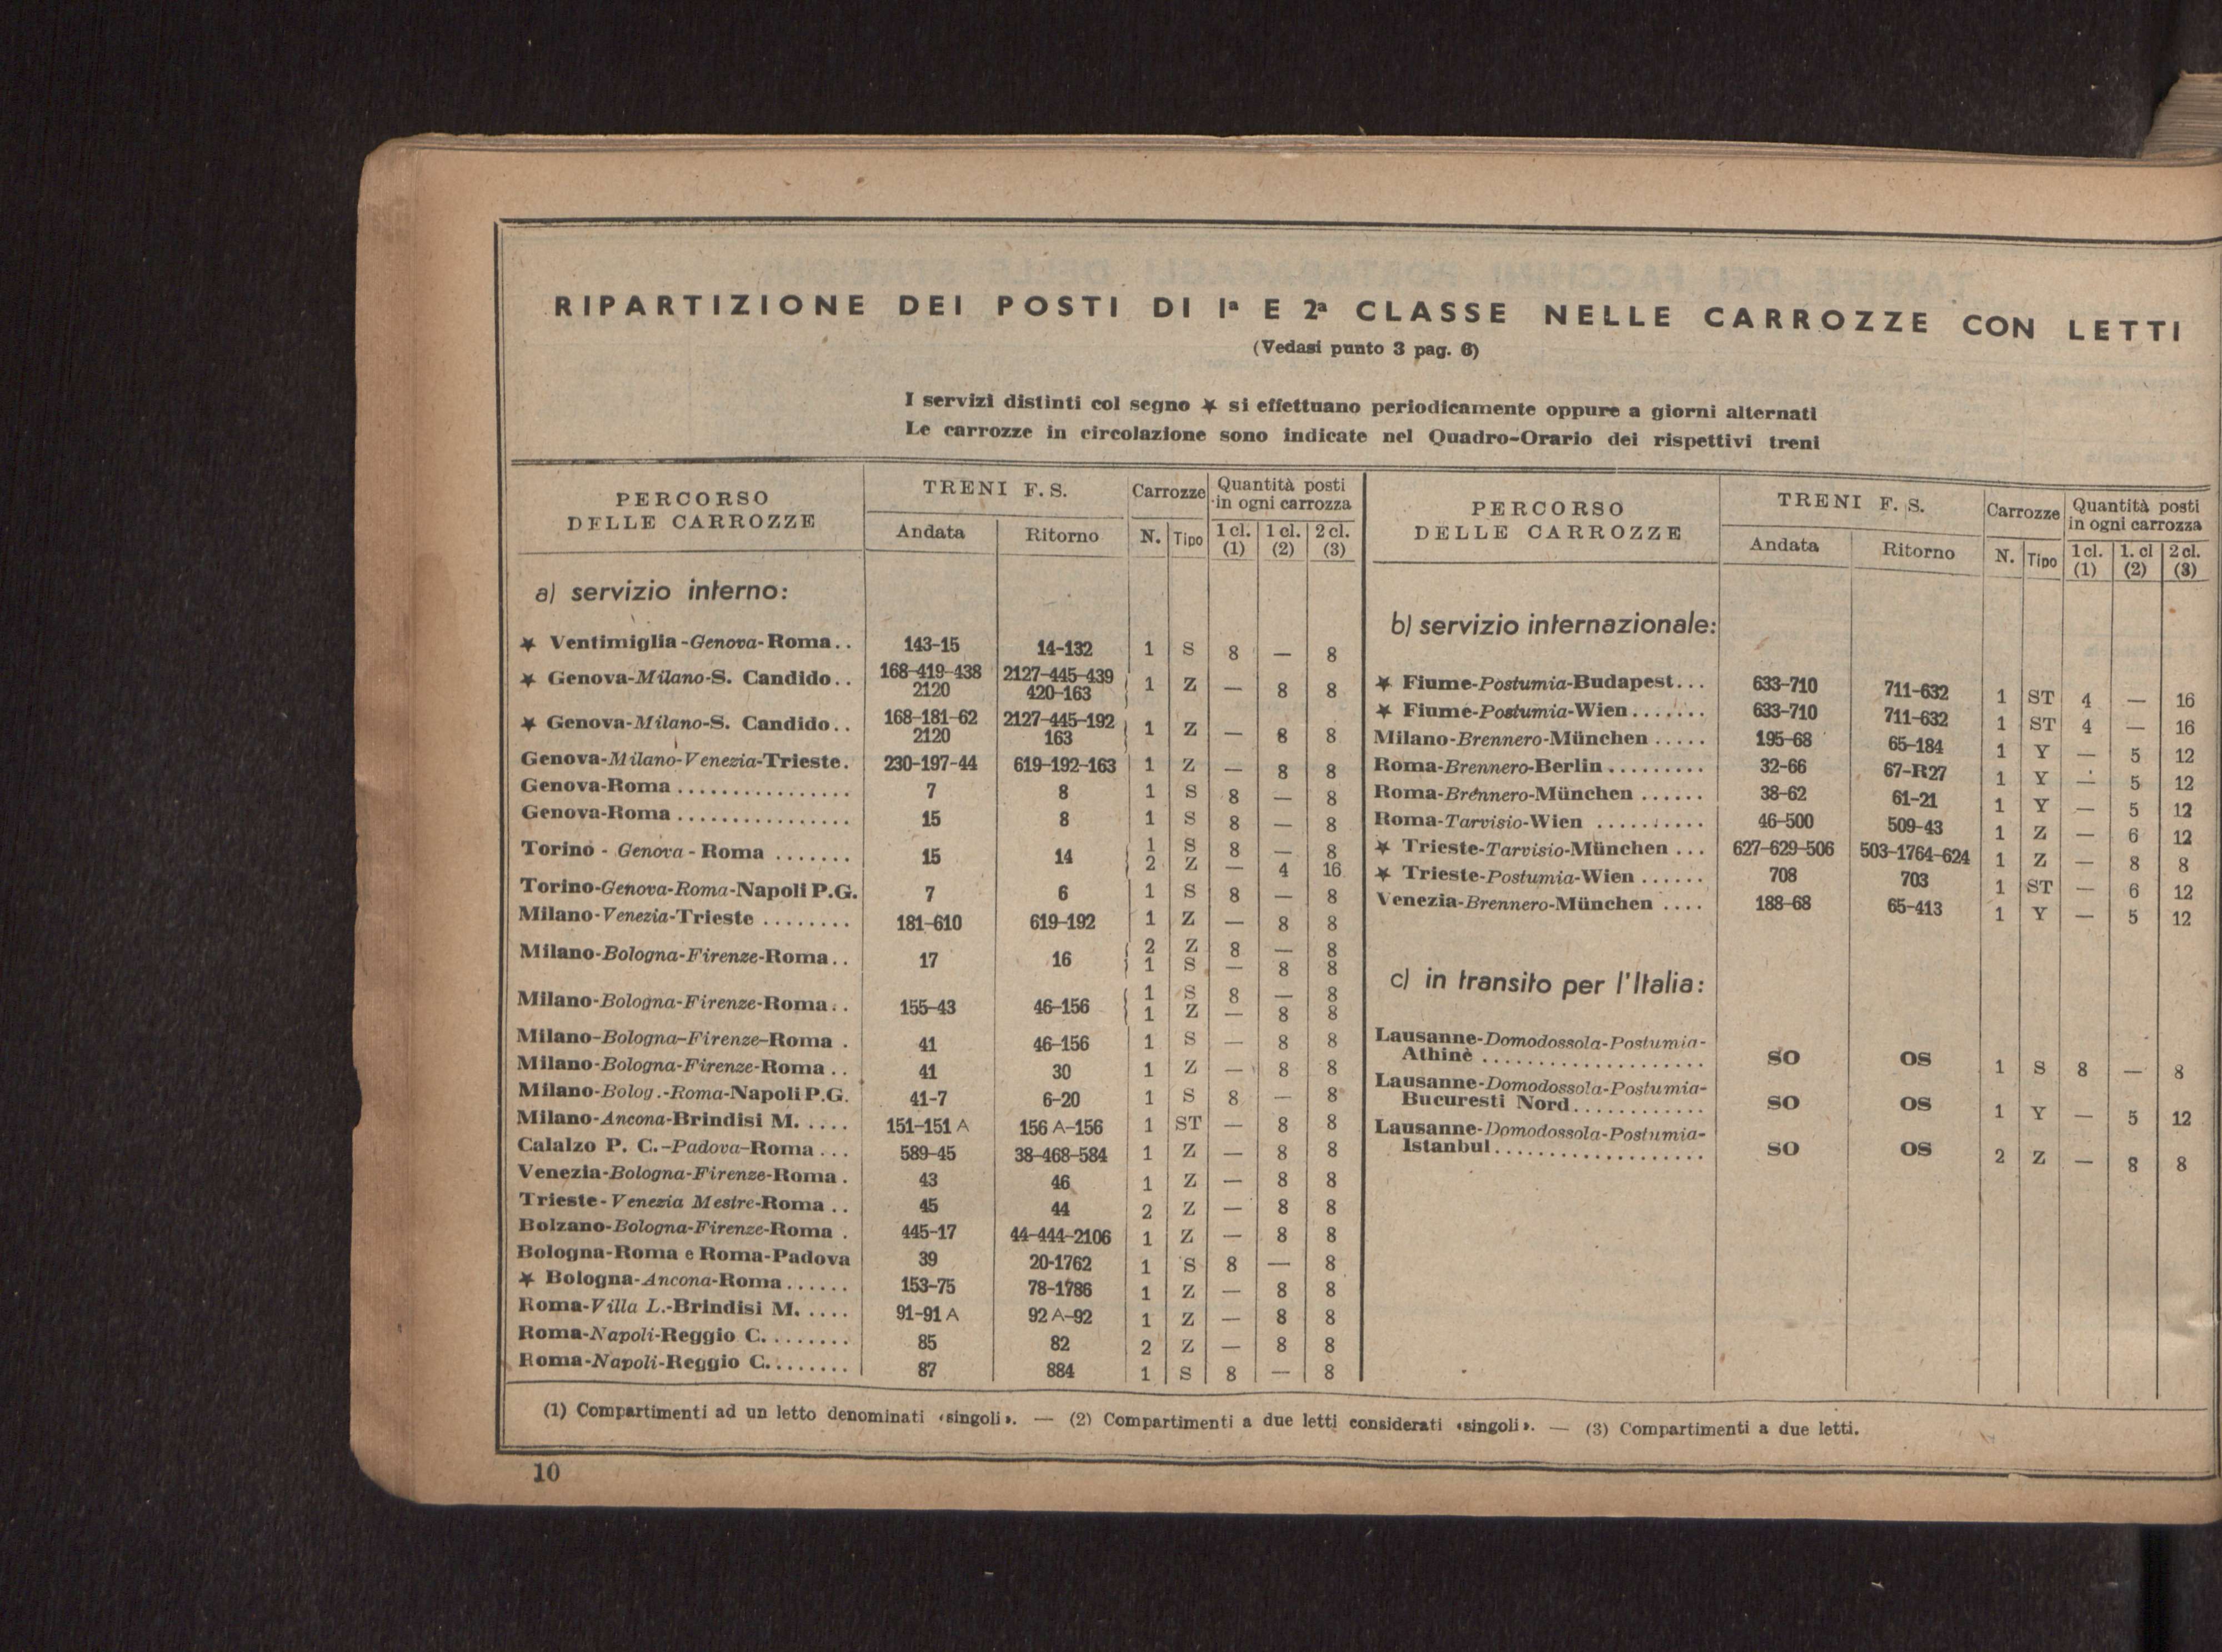 RIPARTIZIONE DEI POSTI DI Iª E 2ª CLASSE NELLE CARROZZE CON LETTI
(Vedasi punto 3 pag. 6)
I servizi distinti col segno ★ si effettuano periodicamente oppure a giorni alternati
Le carrozze in circolazione sono indicate nel Quadro-Orario dei rispettivi treni
PERCORSO DELLE CARROZZE | TRENI F. S. | Carrozze | Quantità posti in ogni carrozza
Andata | Ritorno | N. | Tipo | 1 cl. (1) | 1 cl. (2) | 2 cl. (3)
a) servizio interno:
★ Ventimiglia-Genova-Roma.. 143-15 14-132 1 S 8 — 8
★ Genova-Milano-S. Candido.. 168-419-438 2120 2127-445-439 420-163 1 Z — 8 8
★ Genova-Milano-S. Candido.. 168-181-62 2120 2127-445-192 163 1 Z — 8 8
Genova-Milano-Venezia-Trieste. 230-197-44 619-192-163 1 Z — 8 8
Genova-Roma ................ 7 8 1 S 8 — 8
Genova-Roma ................ 15 8 1 S 8 — 8
Torino - Genova - Roma ....... 15 14 1 S 8 — 8
2 Z — 4 16
Torino-Genova-Roma-Napoli P.G. 7 6 1 S 8 — 8
Milano-Venezia-Trieste ........ 181-610 619-192 1 Z — 8 8
Milano-Bologna-Firenze-Roma.. 17 16 2 Z 8 — 8
1 S — 8 8
Milano-Bologna-Firenze-Roma.. 155-43 46-156 1 S 8 — 8
1 Z — 8 8
Milano-Bologna-Firenze-Roma . 41 46-156 1 S — 8 8
Milano-Bologna-Firenze-Roma .. 41 30 1 Z — 8 8
Milano-Bolog.-Roma-Napoli P.G. 41-7 6-20 1 S 8 — 8
Milano-Ancona-Brindisi M. .... 151-151 A 156 A-156 1 ST — 8 8
Calalzo P. C.-Padova-Roma ... 589-45 38-468-584 1 Z — 8 8
Venezia-Bologna-Firenze-Roma . 43 46 1 Z — 8 8
Trieste-Venezia Mestre-Roma .. 45 44 2 Z — 8 8
Bolzano-Bologna-Firenze-Roma . 445-17 44-444-2106 1 Z — 8 8
Bologna-Roma e Roma-Padova 39 20-1762 1 S 8 — 8
★ Bologna-Ancona-Roma...... 153-75 78-1786 1 Z — 8 8
Roma-Villa L.-Brindisi M. .... 91-91 A 92 A-92 1 Z — 8 8
Roma-Napoli-Reggio C. ....... 85 82 2 Z — 8 8
Roma-Napoli-Reggio C. ....... 87 884 1 S 8 — 8
PERCORSO DELLE CARROZZE | TRENI F. S. | Carrozze | Quantità posti in ogni carrozza
Andata | Ritorno | N. | Tipo | 1 cl. (1) | 1. cl (2) | 2 cl. (3)
b) servizio internazionale:
★ Fiume-Postumia-Budapest... 633-710 711-632 1 ST 4 — 16
★ Fiume-Postumia-Wien....... 633-710 711-632 1 ST 4 — 16
Milano-Brennero-München ..... 195-68 65-184 1 Y — 5 12
Roma-Brennero-Berlin ......... 32-66 67-R27 1 Y — 5 12
Roma-Brennero-München ...... 38-62 61-21 1 Y — 5 12
Roma-Tarvisio-Wien .......... 46-500 509-43 1 Z — 6 12
★ Trieste-Tarvisio-München ... 627-629-506 503-1764-624 1 Z — 8 8
★ Trieste-Postumia-Wien ...... 708 703 1 ST — 6 12
Venezia-Brennero-München .... 188-68 65-413 1 Y — 5 12
c) in transito per l'Italia:
Lausanne-Domodossola-Postumia-
Athinè .................... SO OS 1 S 8 — 8
Lausanne-Domodossola-Postumia-
Bucuresti Nord............ SO OS 1 Y — 5 12
Lausanne-Domodossola-Postumia-
Istanbul................... SO OS 2 Z — 8 8
(1) Compartimenti ad un letto denominati «singoli». — (2) Compartimenti a due letti considerati «singoli». — (3) Compartimenti a due letti.
10